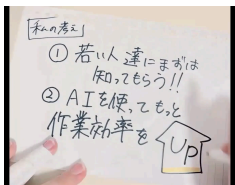 私の考え
① 若い人達にまずは
知ってもらう!!
② AIを使ってもっと
作業効率を
UP